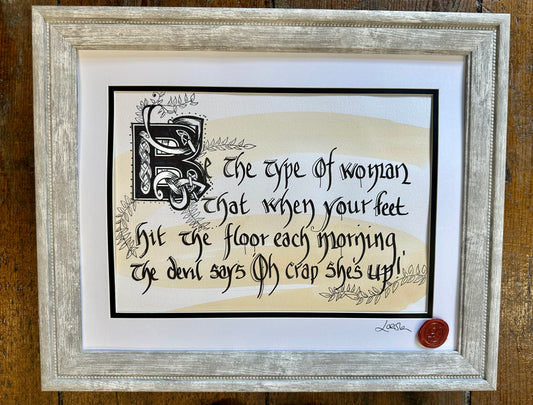 Be the type of woman
that when your feet
hit the floor each morning
the devil says Oh crap shes up!